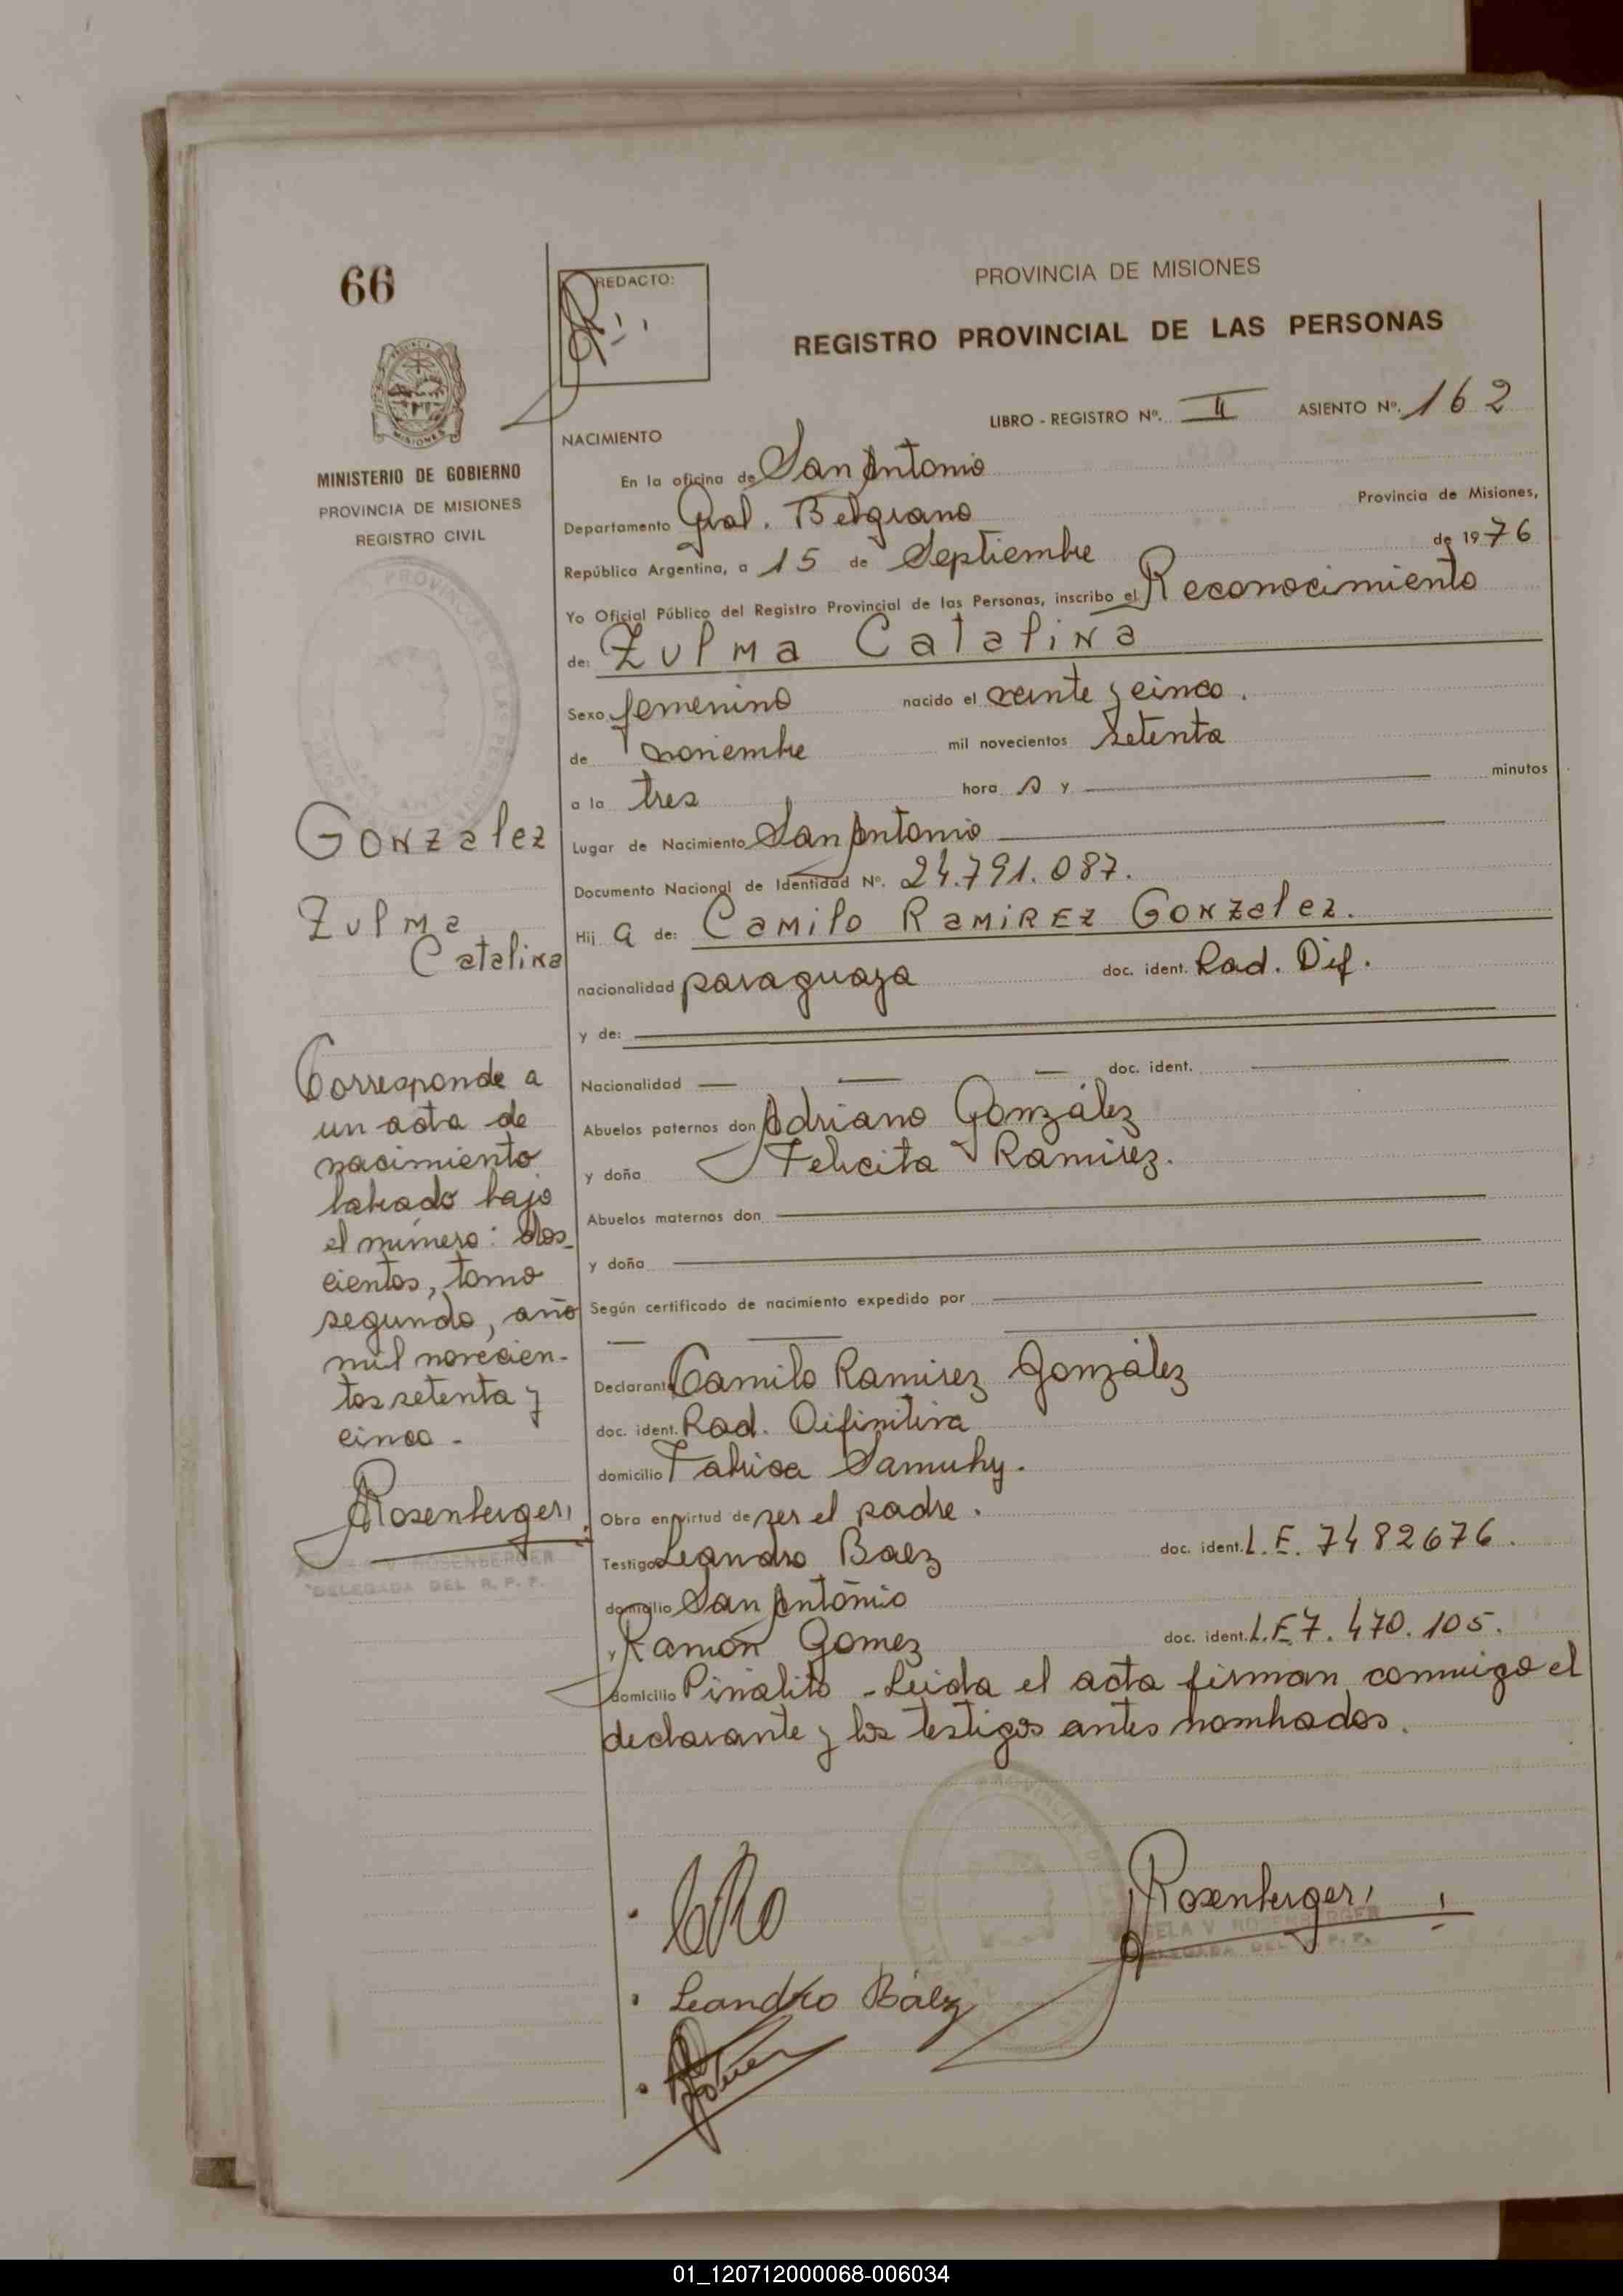 66
MINISTERIO DE GOBIERNO
PROVINCIA DE MISIONES
REGISTRO CIVIL
Gonzalez
Zulma
Catalina
Corresponde a
un acta de
nacimiento
labrado bajo
el número: dos-
cientos, tomo
segundo, año
mil novecien-
tos setenta y
cinco -
Rosenberger
V ROSENBERGER
DELEGADA DEL R. P. P.
REDACTO:
PROVINCIA DE MISIONES
REGISTRO PROVINCIAL DE LAS PERSONAS
LIBRO - REGISTRO Nº. II ASIENTO Nº. 162
NACIMIENTO
En la oficina de San Antonio
Departamento Gral. Belgrano Provincia de Misiones,
República Argentina, a 15 de Septiembre de 1976
Yo Oficial Público del Registro Provincial de las Personas, inscribo el Reconocimiento
de: Zulma Catalina
Sexo femenino nacido el veinte y cinco.
de noviembre mil novecientos setenta
a la tres hora s y minutos
Lugar de Nacimiento San Antonio
Documento Nacional de Identidad Nº. 24.791.087.
Hij a de: Camilo Ramirez Gonzalez.
nacionalidad paraguaya doc. ident. Rad. Dif.
y de:
Nacionalidad — — — doc. ident.
Abuelos paternos don Adriano González
y doña Felicita Ramirez.
Abuelos maternos don
y doña
Según certificado de nacimiento expedido por
Declarante Camilo Ramirez González
doc. ident. Rad. Difinitiva
domicilio Fabrica Samuhy.
Obra en virtud de ser el padre.
Testigos Leandro Baez doc. ident. L.E. 7482676.
domicilio San Antonio
y Ramón Gomez doc. ident. L.E. 7.470.105.
domicilio Piñalito - Leida el acta firman conmigo el
declarante y los testigos antes nombrados.
Rosenberger
V ROSENBERGER
DELEGADA DEL R. P. P.
Leandro Báez
01_120712000068-006034